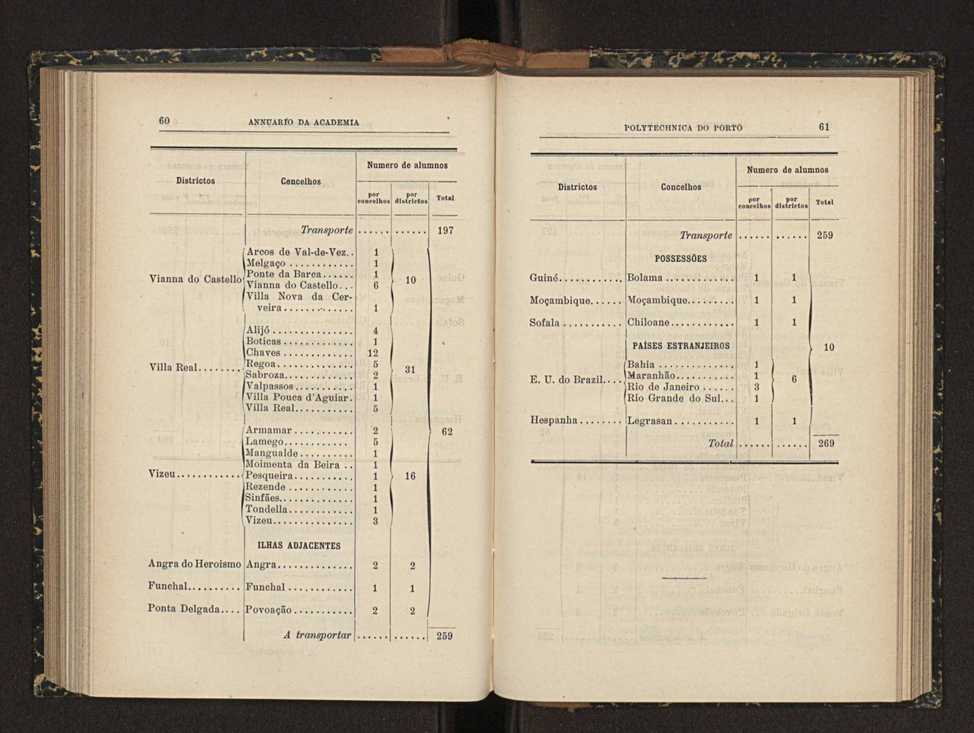 60 ANNUARIO DA ACADEMIA
Districtos Cencelhos Numero de alumnos
por concelhos por districtos Total
Transporte ...... ...... 197
Arcos de Val-de-Vez.. 1
Melgaço ............ 1
Ponte da Barca...... 1
Vianna do Castello Vianna do Castello... 6 10
Villa Nova da Cer-
veira............ 1
Alijó .............. 4
Boticas ............ 1
Chaves ............ 12
Regoa.............. 5
Villa Real........ Sabroza............ 2 31
Valpassos.......... 1
Villa Pouca d'Aguiar. 1
Villa Real.......... 5
Armamar .......... 2 62
Lamego........... 5
Mangualde ......... 1
Moimenta da Beira .. 1
Vizeu........... Pesqueira.......... 1 16
Rezende ........... 1
Sinfães............. 1
Tondella ........... 1
Vizeu.............. 3
ILHAS ADJACENTES
Angra do Heroismo Angra............. 2 2
Funchal......... Funchal ........... 1 1
Ponta Delgada.... Povoação .......... 2 2
A transportar ...... ...... 259
POLYTECHNICA DO PORTO 61
Districtos Concelhos Numero de alumnos
por concelhos por districtos Total
Transporte ...... ...... 259
POSSESSÕES
Guiné........... Bolama ............ 1 1
Moçambique...... Moçambique........ 1 1
Sofala .......... Chiloane........... 1 1
PAÍSES ESTRANJEIROS 10
Bahia ............. 1
E. U. do Brazil.... Maranhão.......... 1 6
Rio de Janeiro ...... 3
Rio Grande do Sul... 1
Hespanha ........ Legrasan........... 1 1
Total ...... ...... 269